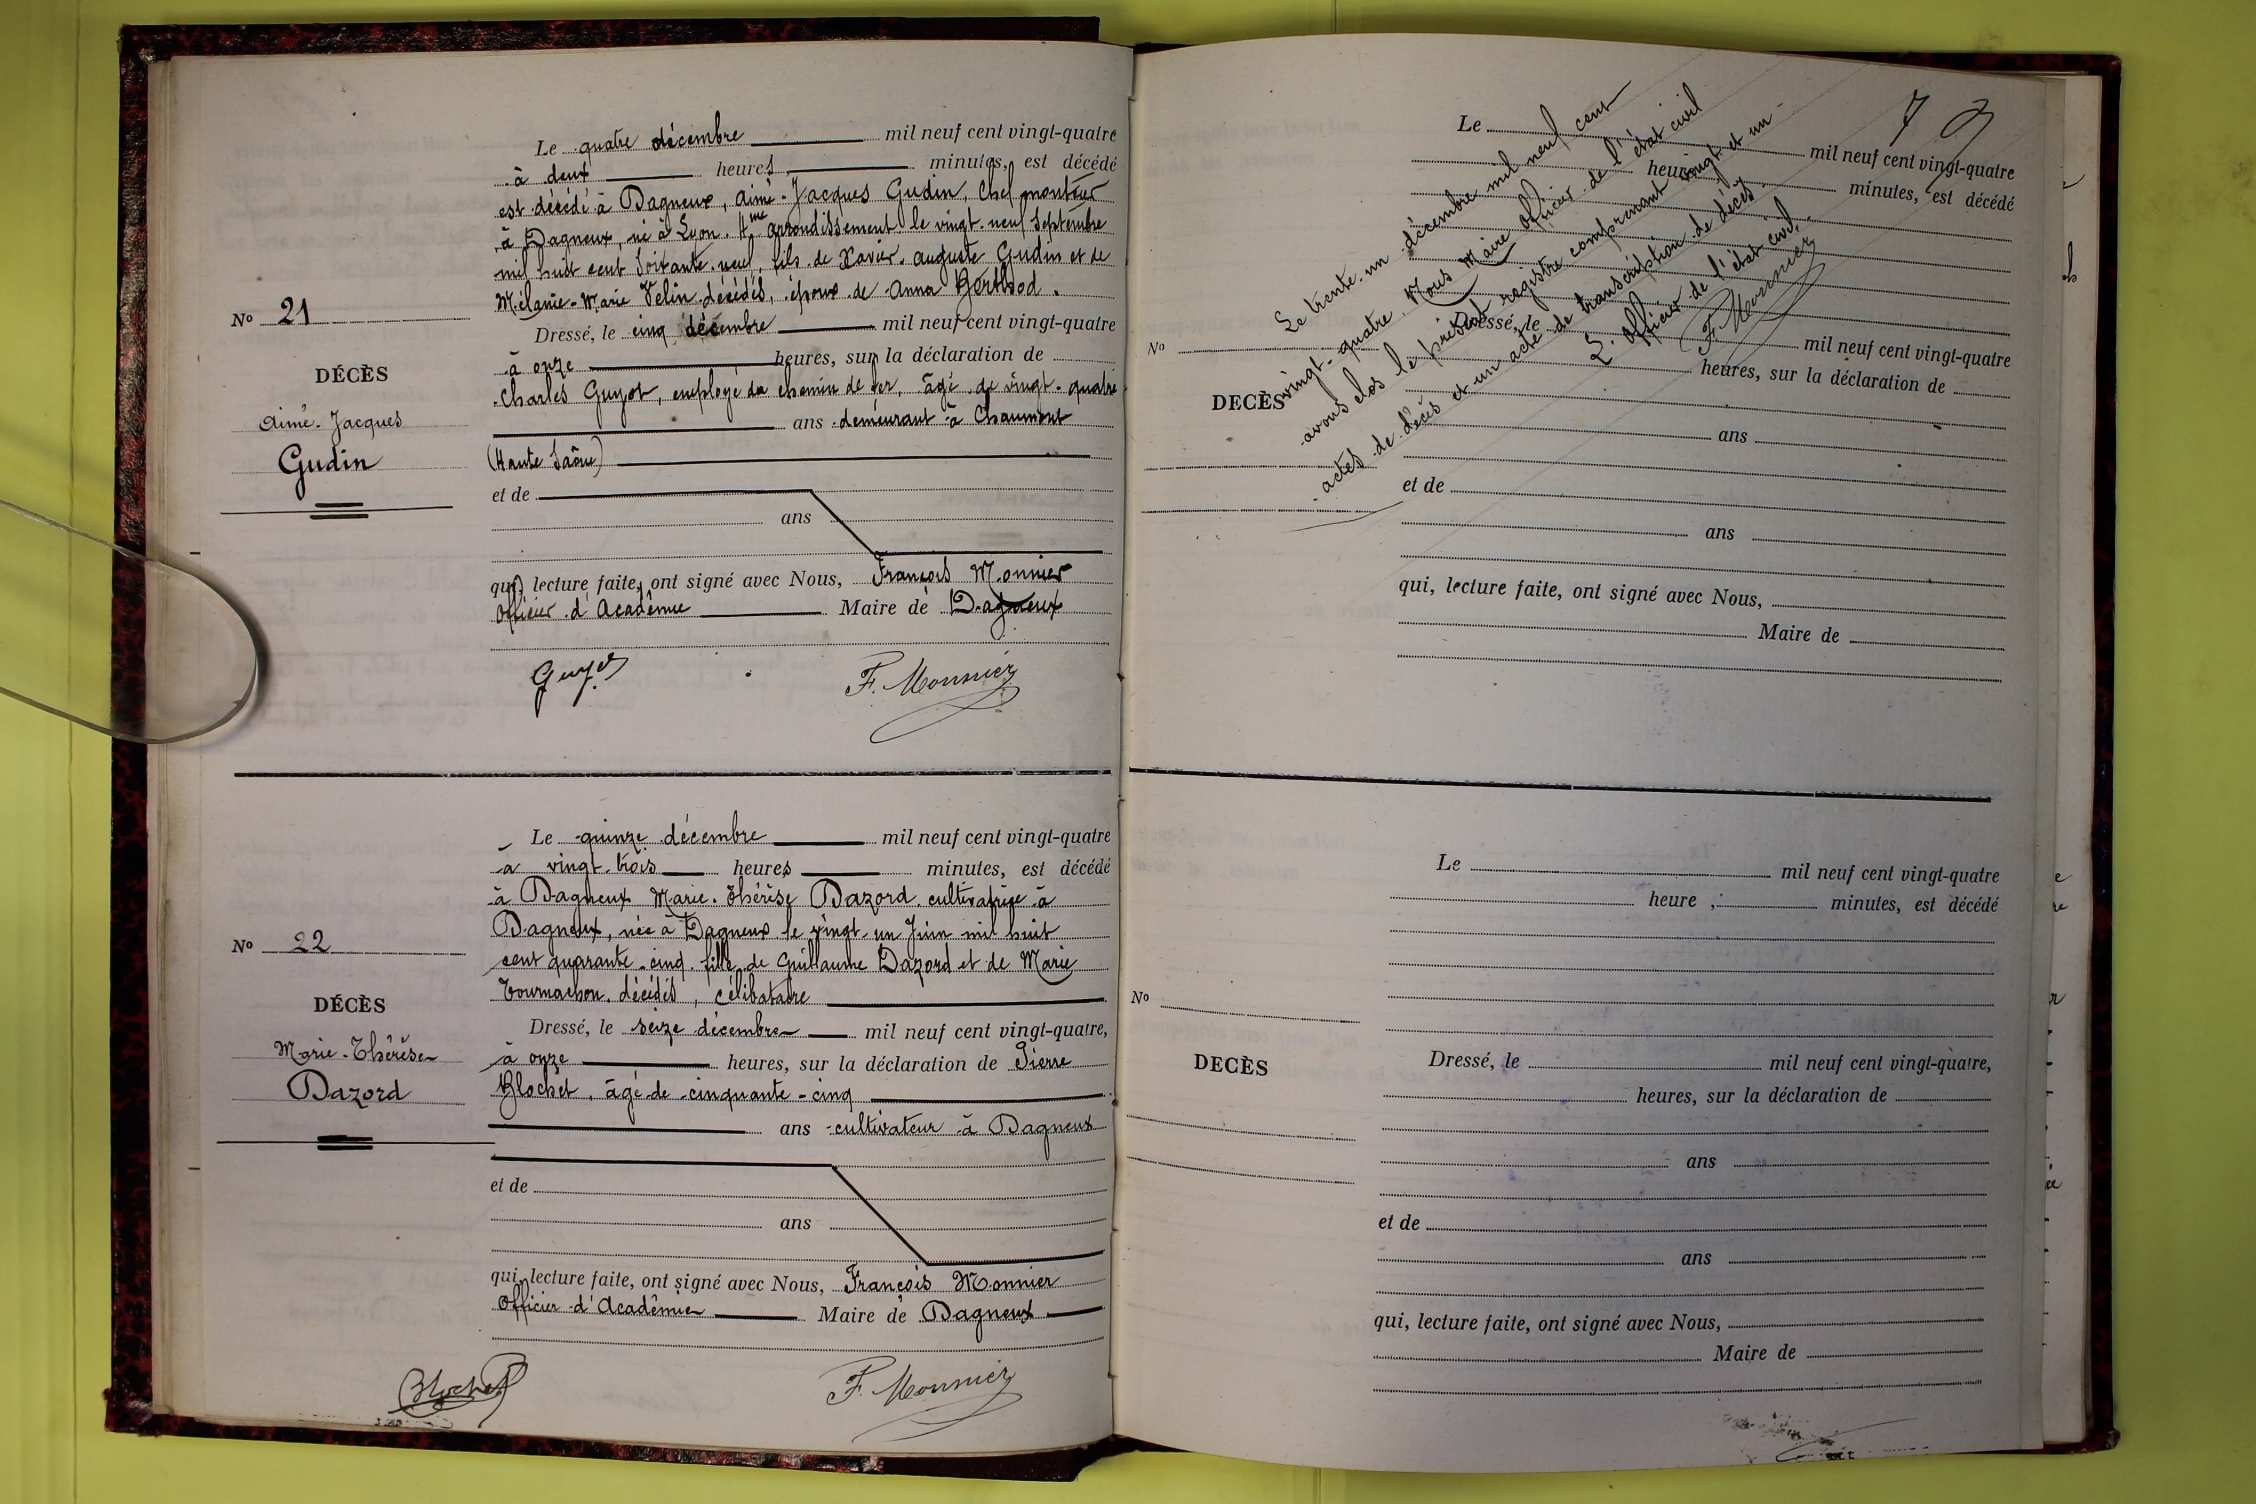 Le quatre décembre mil neuf cent vingt-quatre
à deux heures minutes, est décédé
est décédé à Dagneux, Aimé-Jacques Gudin, Chef monteur
à Dagneux, né à Lyon 4me arrondissement le vingt-neuf Septembre
mil huit cent soixante-neuf, fils de Xavier-Auguste Gudin et de
Mélanie-Marie Velin décédés, époux de Anna Berthod.
No 21
Dressé, le cinq décembre mil neuf cent vingt-quatre
à onze heures, sur la déclaration de
DÉCÈS
Charles Guyot, employé du chemin de fer, âgé de vingt-quatre
Aimé-Jacques
ans demeurant à Chaumont
Gudin
(Haute Saône)
et de
ans
qui, lecture faite, ont signé avec Nous, François Monnier
Officier d'Académie Maire de Dagneux
Guyot F. Monnier
Le quinze décembre mil neuf cent vingt-quatre
à vingt-trois heures minutes, est décédé
à Dagneux Marie-Thérèse Dazord cultivatrice à
Dagneux, née à Dagneux le vingt-un Juin mil huit
No 22
cent quarante-cinq fille de Guillaume Dazord et de Marie
Tournachon décédés, célibataire
DÉCÈS
Dressé, le seize décembre mil neuf cent vingt-quatre,
Marie-Thérèse
à onze heures, sur la déclaration de Pierre
Dazord
Blochet, âgé de cinquante-cinq
ans cultivateur à Dagneux
et de
ans
qui, lecture faite, ont signé avec Nous, François Monnier
Officier d'Académie Maire de Dagneux
Blochet F. Monnier
Le mil neuf cent vingt-quatre
heures minutes, est décédé
Le trente-un décembre mil neuf cent
vingt-quatre Nous Maire officier de l'état civil
avons clos le présent registre comprenant vingt et un
actes de décès et un acte de transcription de décès.
L'officier de l'état civil.
F. Monnier
No
Dressé, le mil neuf cent vingt-quatre
heures, sur la déclaration de
DECÈS
ans
et de
ans
qui, lecture faite, ont signé avec Nous,
Maire de
Le mil neuf cent vingt-quatre
heure minutes, est décédé
No
DECÈS
Dressé, le mil neuf cent vingt-quatre,
heures, sur la déclaration de
ans
et de
ans
qui, lecture faite, ont signé avec Nous,
Maire de